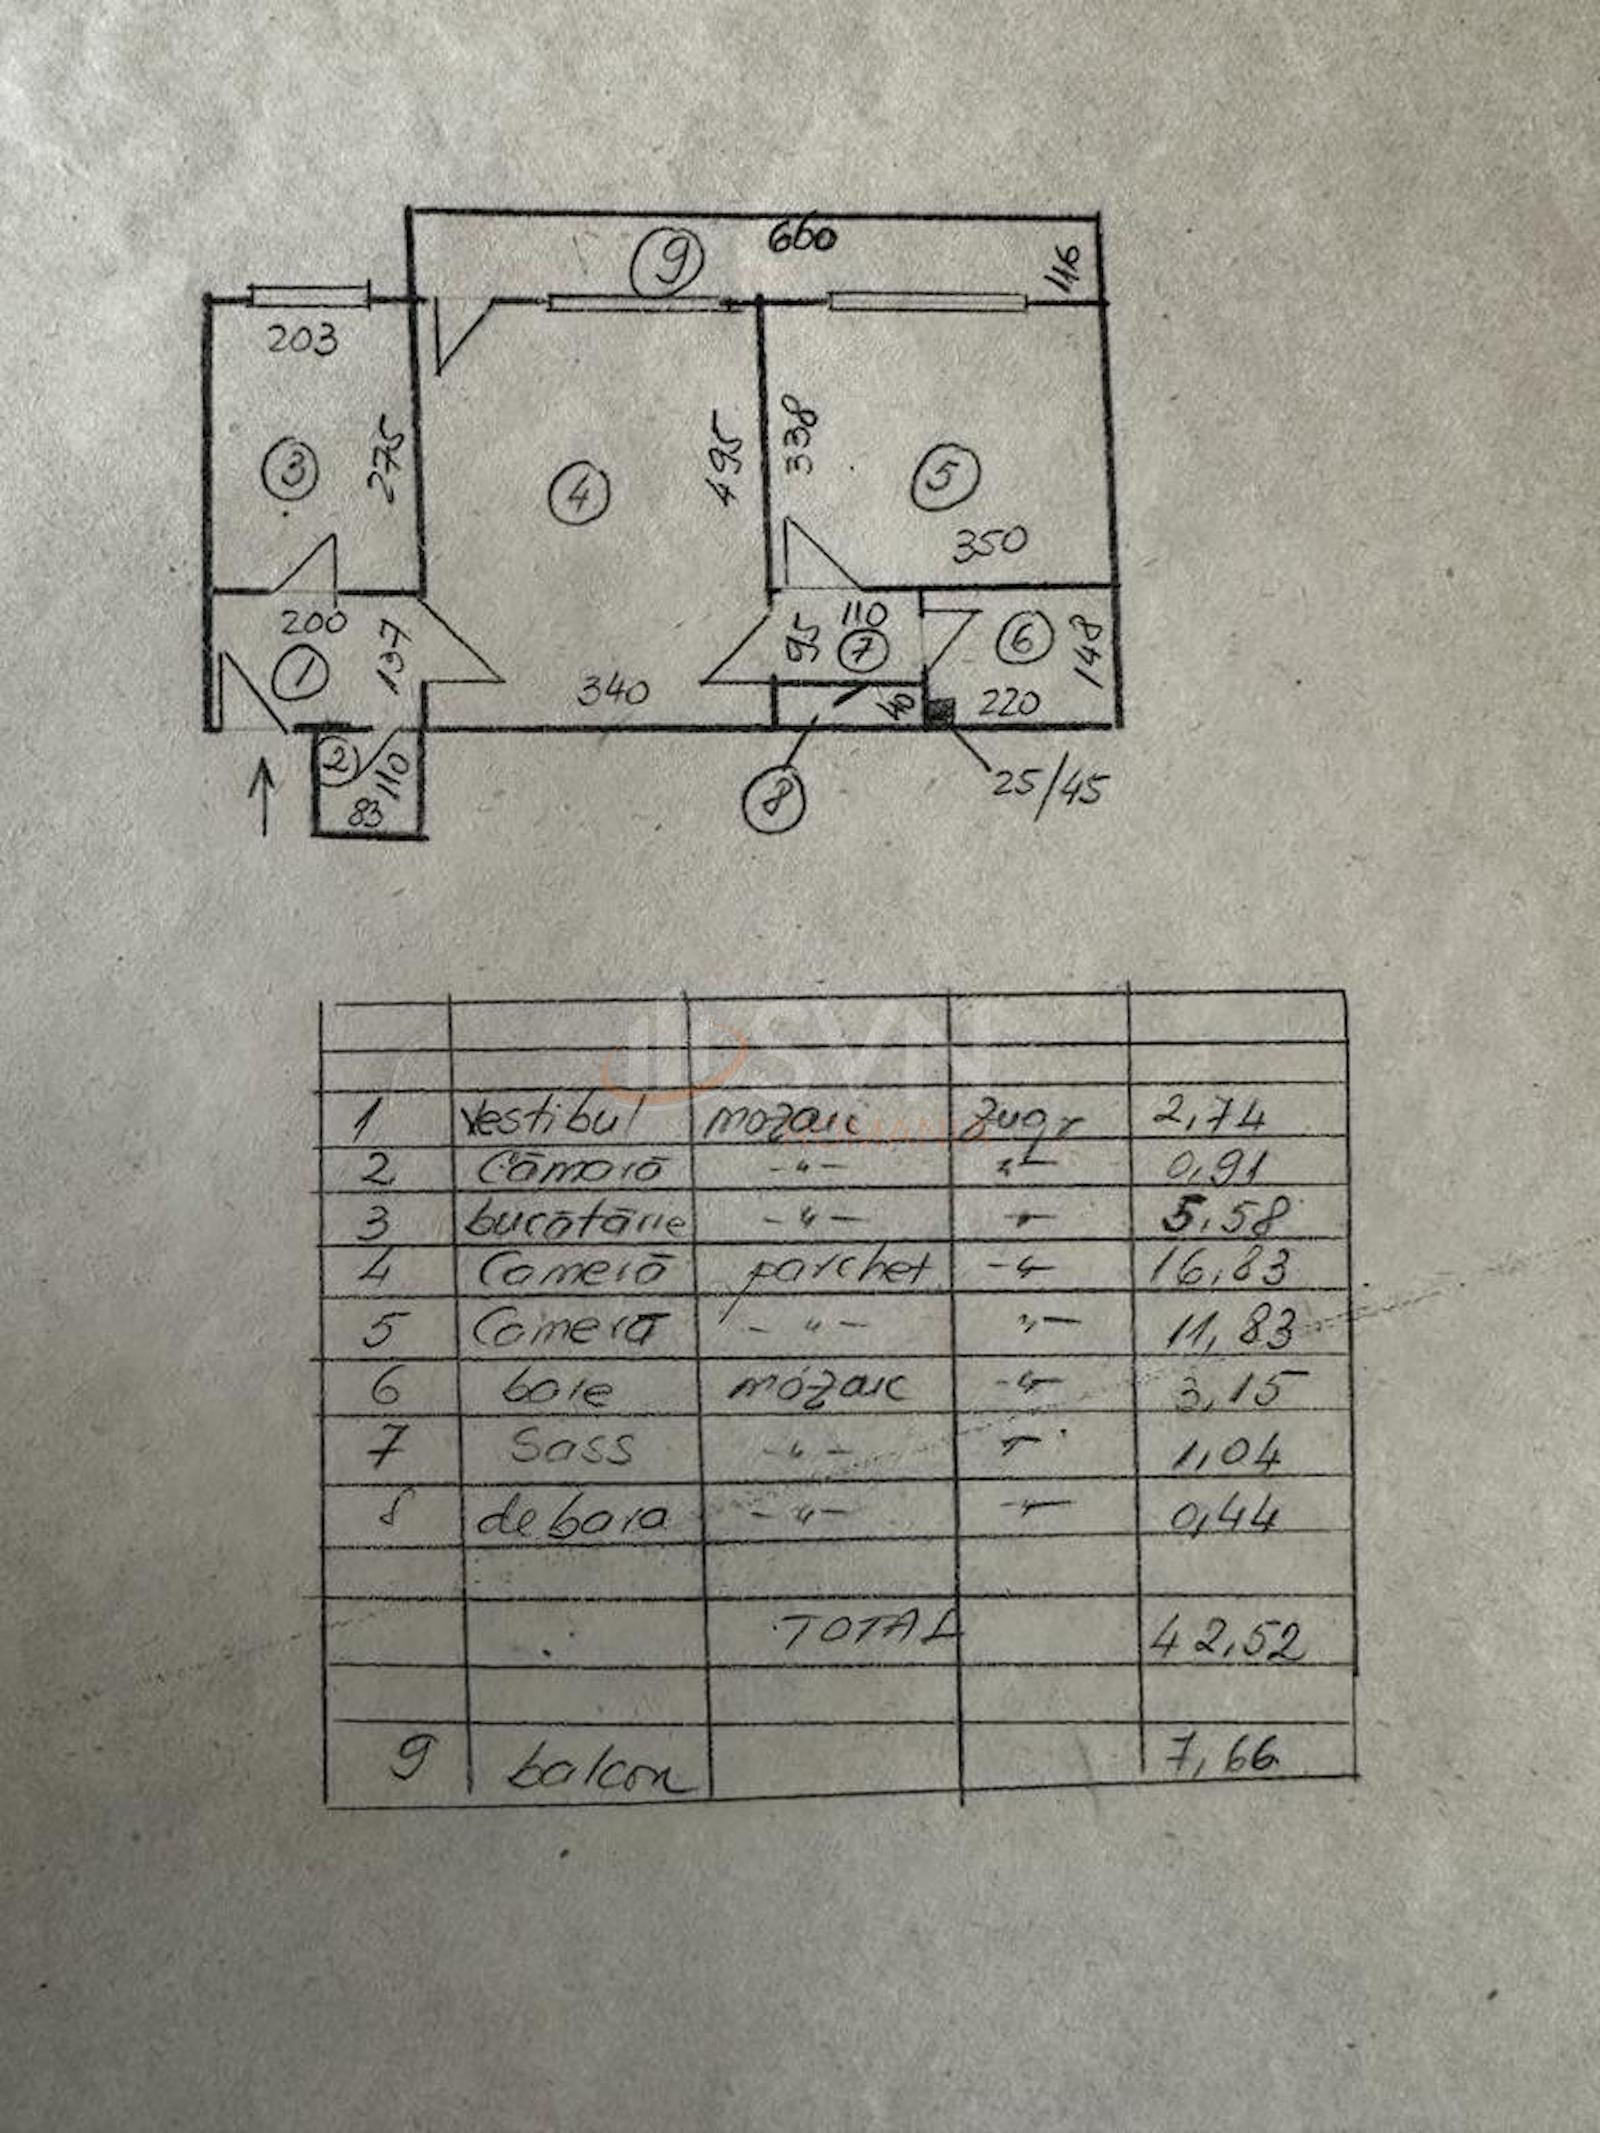 660
9
116
203
275
3
4
495
338
5
350
200
137
1
340
110
95
7
6
148
220
40
2
110
83
8
25/45
IDSVN
1 Vestibul mozaic Zugr 2,74
2 Cămară -"- -"- 0,91
3 bucătărie -"- -"- 5,58
4 Cameră parchet -"- 16,83
5 Cameră -"- -"- 11,83
6 baie mozaic -"- 3,15
7 Sass -"- -"- 1,04
8 debara -"- -"- 0,44
TOTAL 42,52
9 balcon 7,66